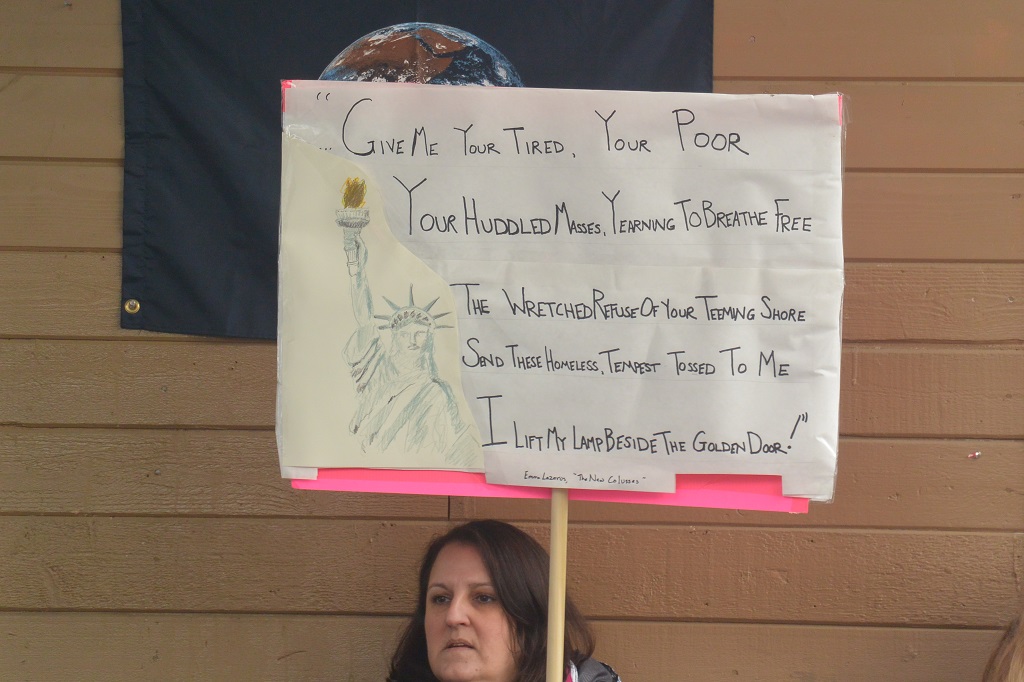 “
... GIVE ME YOUR TIRED, YOUR POOR
YOUR HUDDLED MASSES, YEARNING TO BREATHE FREE
THE WRETCHED REFUSE OF YOUR TEEMING SHORE
SEND THESE HOMELESS, TEMPEST TOSSED TO ME
I LIFT MY LAMP BESIDE THE GOLDEN DOOR!”
Emma Lazarus, "The New Colussus"